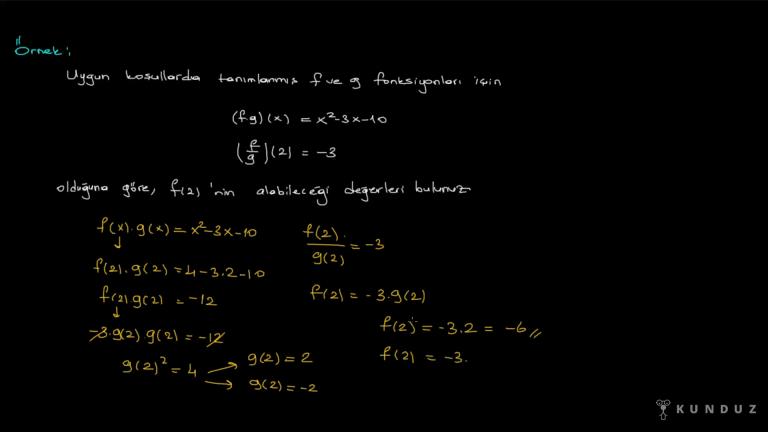 Örnek:
Uygun koşullarda tanımlanmış f ve g fonksiyonları için
(fg)(x) = x²-3x-10
(f/g)(2) = -3
olduğuna göre, f(2)'nin alabileceği değerleri bulunuz
f(x).g(x) = x²-3x-10
f(2).g(2) = 4-3.2-10
f(2)g(2) = -12
-3.g(2).g(2) = -12
g(2)² = 4
g(2) = 2
g(2) = -2
f(2)/g(2) = -3
f(2) = -3.g(2)
f(2) = -3.2 = -6//
f(2) = -3.
KUNDUZ